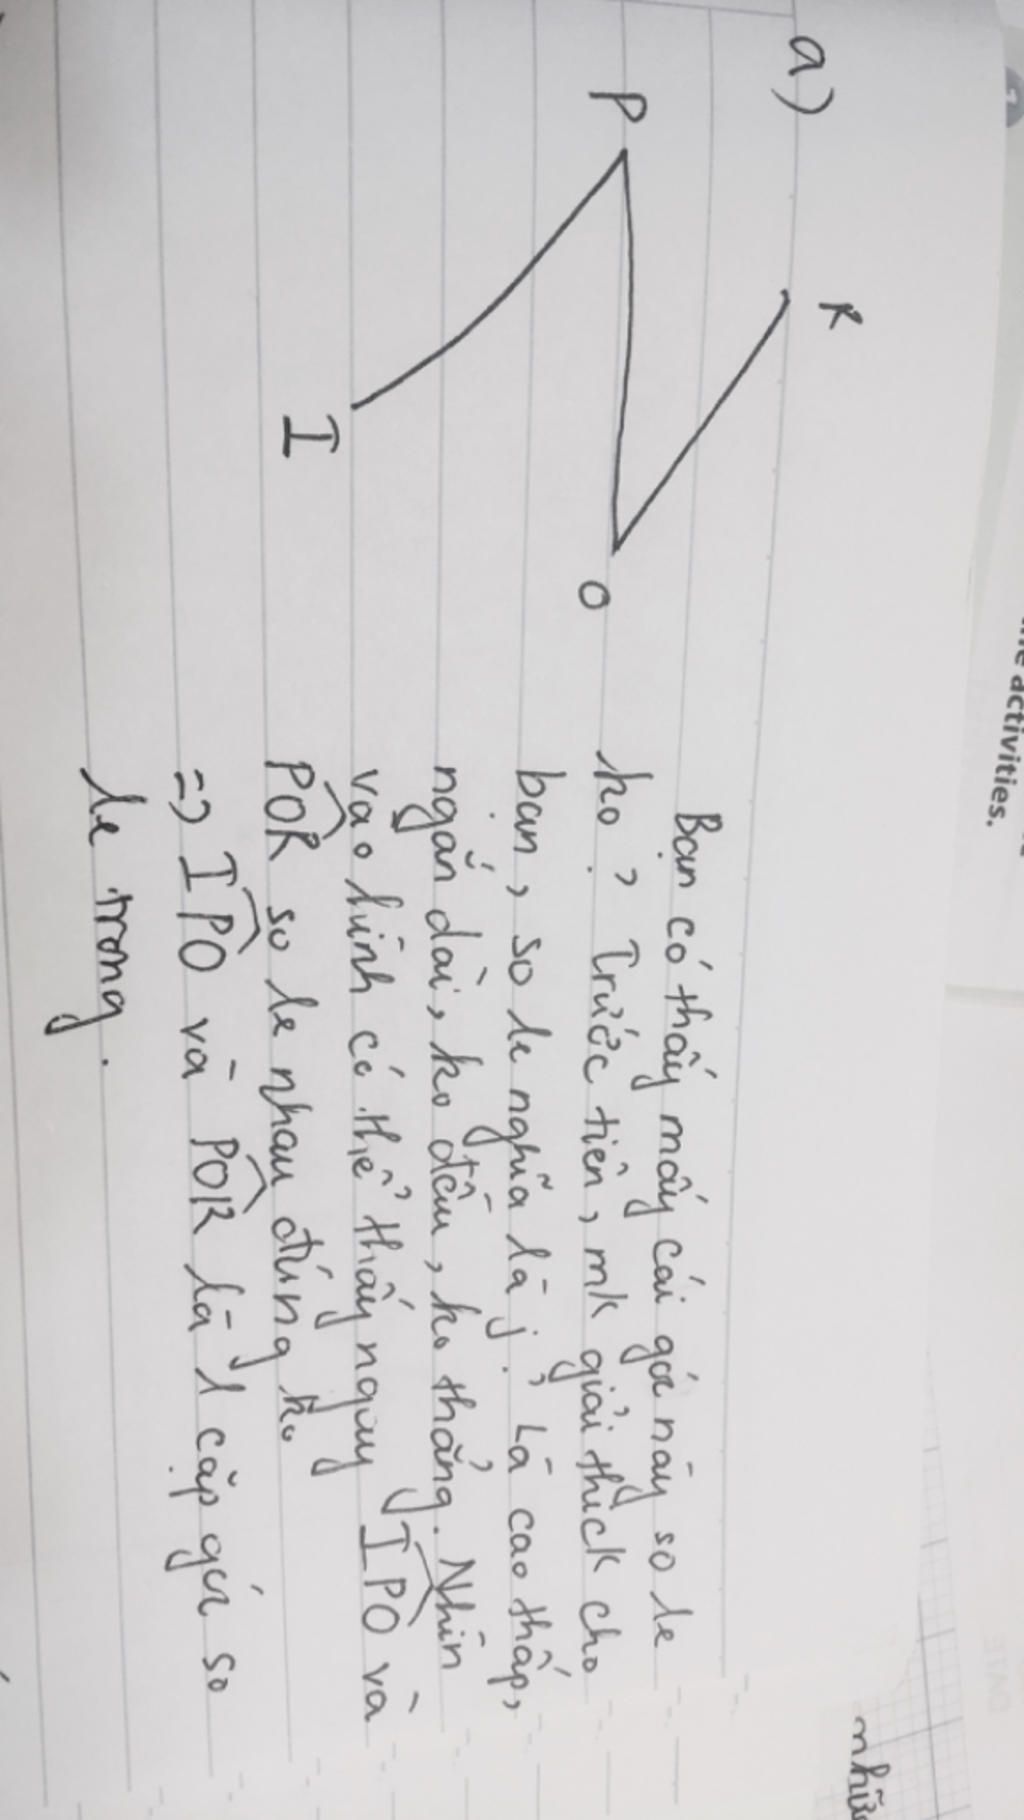 a)
R
P
O
I
Bạn có thấy mấy cái góc này so le
ko? Trước tiên, mk giải thick cho
bạn, so le nghĩa là j? Là cao thấp,
ngắn dài, ko đều, ko thẳng. Nhìn
vào hình có thể thấy ngay IPO và
POR so le nhau đúng ko
=> IPO và POR là 1 cặp góc so
le trong.
activities.
DATE